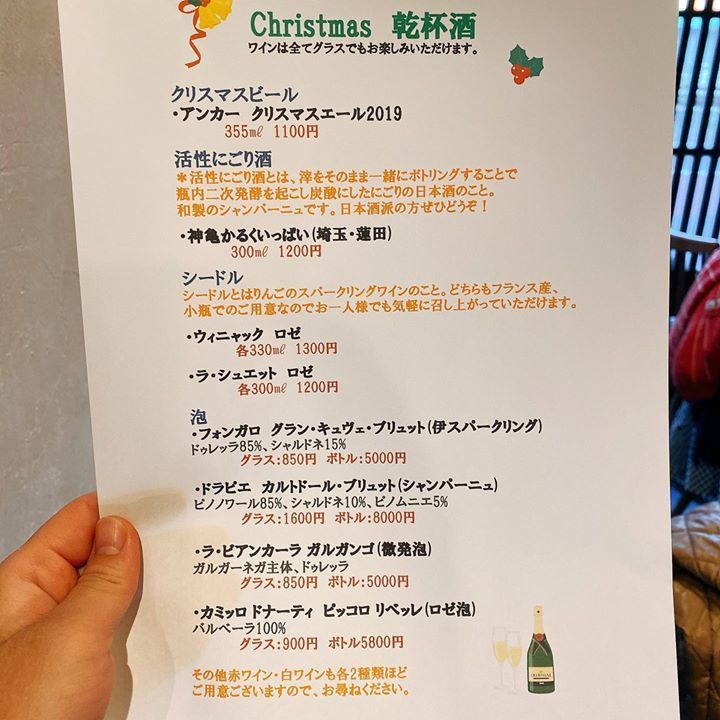 Christmas 乾杯酒
ワインは全てグラスでもお楽しみいただけます。
クリスマスビール
・アンカー クリスマスエール2019
355㎖ 1100円
活性にごり酒
＊活性にごり酒とは、滓をそのまま一緒にボトリングすることで
瓶内二次発酵を起こし炭酸にしたにごりの日本酒のこと。
和製のシャンパーニュです。日本酒派の方ぜひどうぞ！
・神亀かるくいっぱい(埼玉・蓮田)
300㎖ 1200円
シードル
シードルとはりんごのスパークリングワインのこと。どちらもフランス産、
小瓶でのご用意なのでお一人様でも気軽に召し上がっていただけます。
・ウィニャック ロゼ
各330㎖ 1300円
・ラ・シュエット ロゼ
各300㎖ 1200円
泡
・フォンガロ グラン・キュヴェ・ブリュット(伊スパークリング)
ドゥレッラ85%、シャルドネ15%
グラス:850円 ボトル:5000円
・ドラピエ カルトドール・ブリュット(シャンパーニュ)
ピノノワール85%、シャルドネ10%、ピノムニエ5%
グラス:1600円 ボトル:8000円
・ラ・ビアンカーラ ガルガンゴ(微発泡)
ガルガーネガ主体、ドゥレッラ
グラス:850円 ボトル:5000円
・カミッロ ドナーティ ピッコロ リベッレ(ロゼ泡)
バルベーラ100%
グラス:900円 ボトル5800円
その他赤ワイン・白ワインも各2種類ほど
ご用意ございますので、お尋ねください。